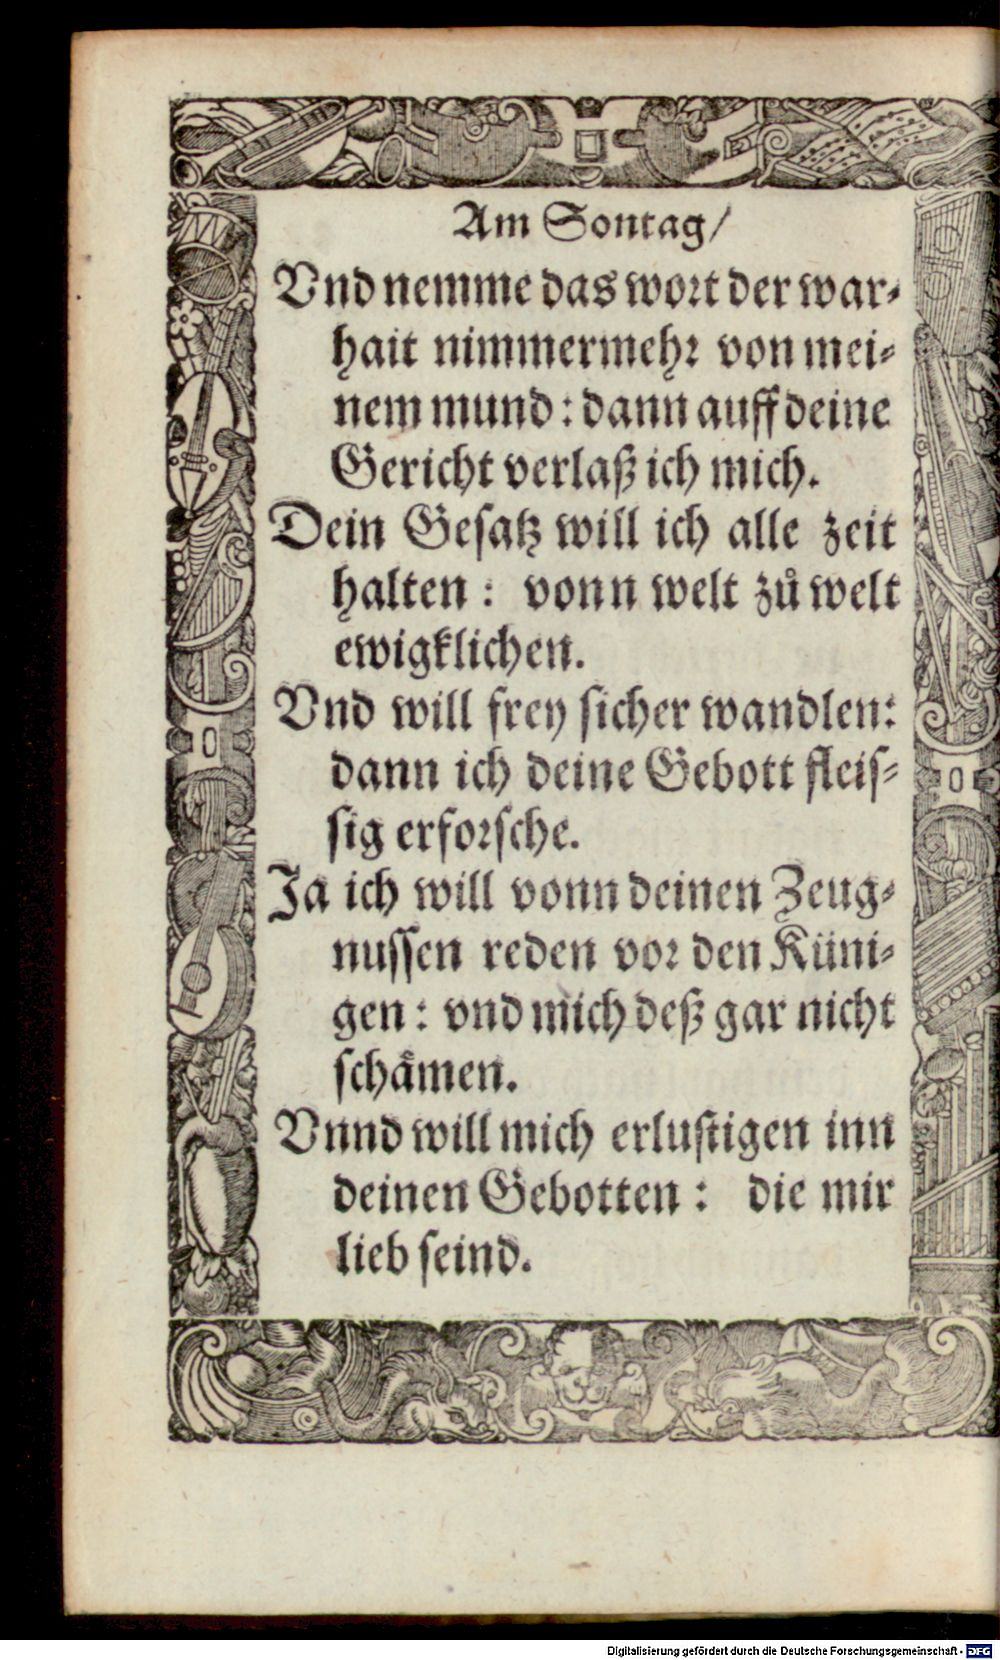 Am Sontag/
Vnd nemme das wort der war⸗
hait nimmermehr von mei⸗
nem mund: dann auff deine
Gericht verlaß ich mich.
Dein Gesatz will ich alle zeit
halten: vonn welt zů welt
ewigklichen.
Vnd will frey sicher wandlen:
dann ich deine Gebott fleis⸗
sig erforsche.
Ja ich will vonn deinen Zeug⸗
nussen reden vor den Küni⸗
gen: vnd mich deß gar nicht
schämen.
Vnnd will mich erlustigen inn
deinen Gebotten: die mir
lieb seind.
Digitalisierung gefördert durch die Deutsche Forschungsgemeinschaft - DFG